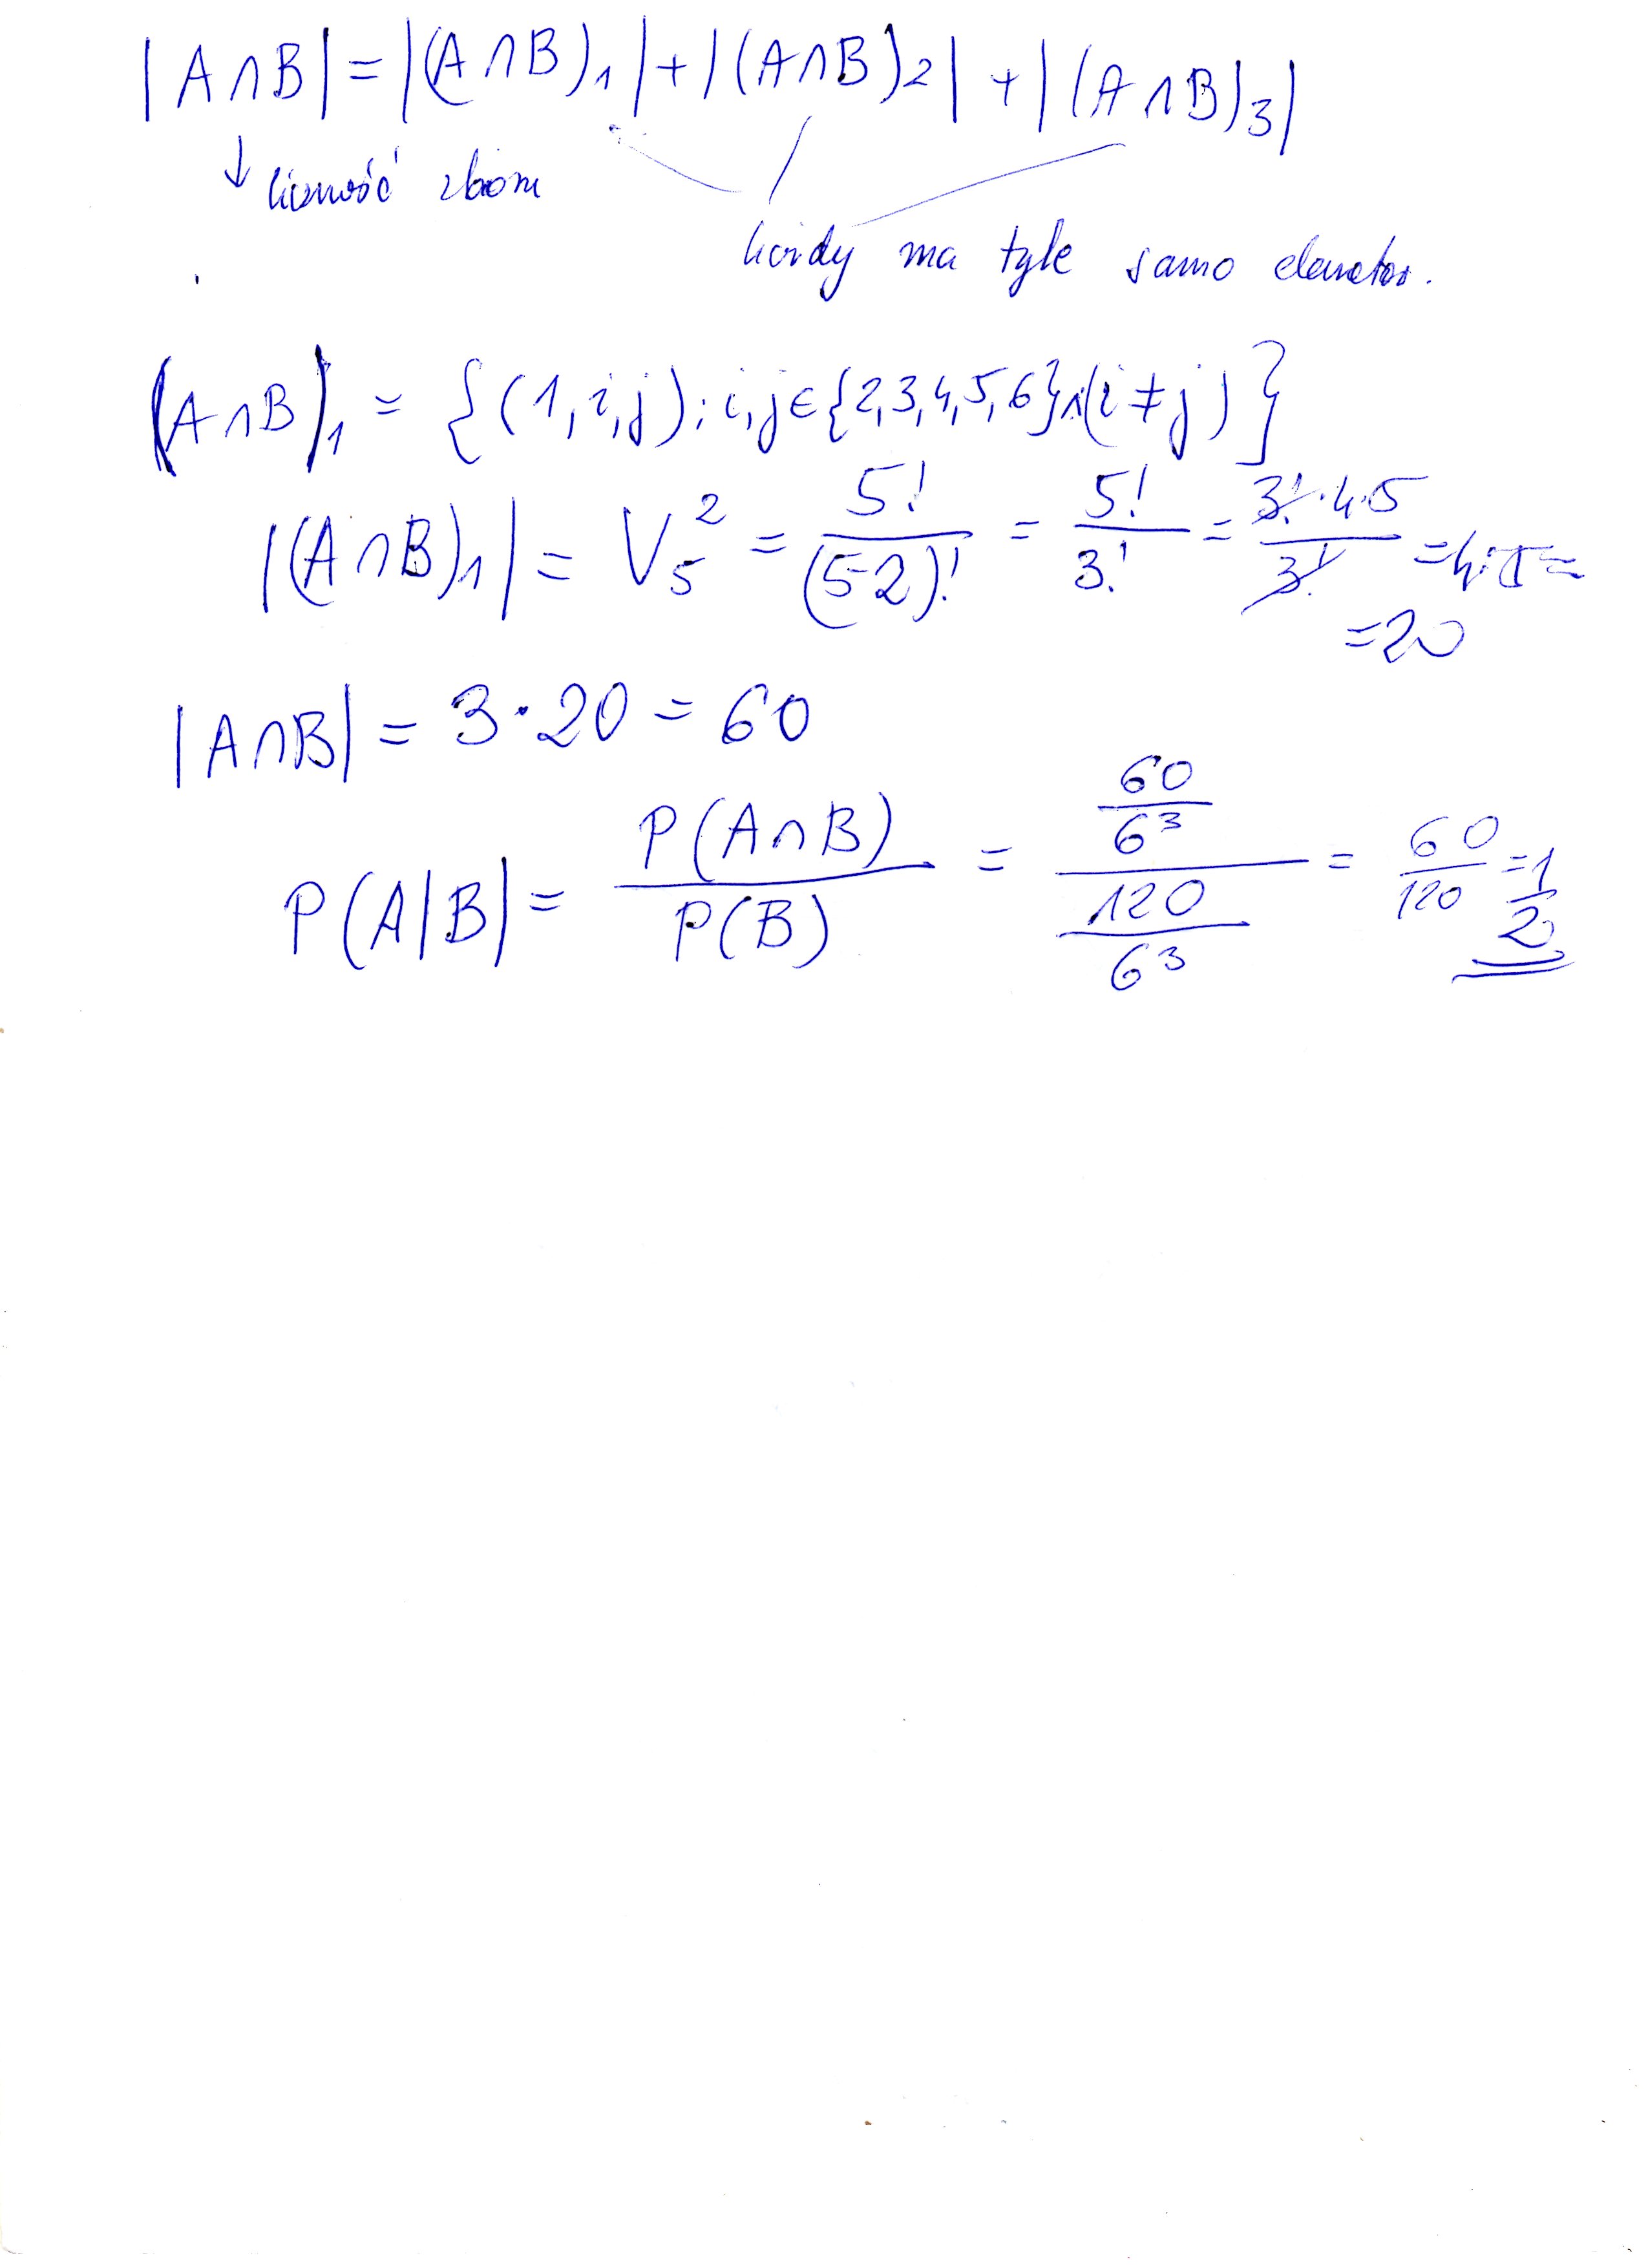 |A∩B| = |(A∩B)₁| + |(A∩B)₂| + |(A∩B)₃|
↓ liczność zbioru
każdy ma tyle samo elementów.
(A∩B)₁ = {(1,i,j); i,j∈{2,3,4,5,6}∧(i≠j)}
|(A∩B)₁| = V₅² = 5!/(5-2)! = 5!/3! = 3!·4·5/3! = 4·5 =
= 20
|A∩B| = 3·20 = 60
P(A|B) = P(A∩B)/P(B) = (60/6³)/(120/6³) = 60/120 = 1/2